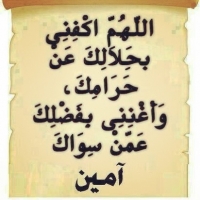 اللّهُمّ اكْفِنِي
بِحَلَالِكَ عَنْ
حَرَامِكَ،
وَأَغْنِنِي بِفَضْلِكَ
عَمّنْ سِوَاكَ
آمين